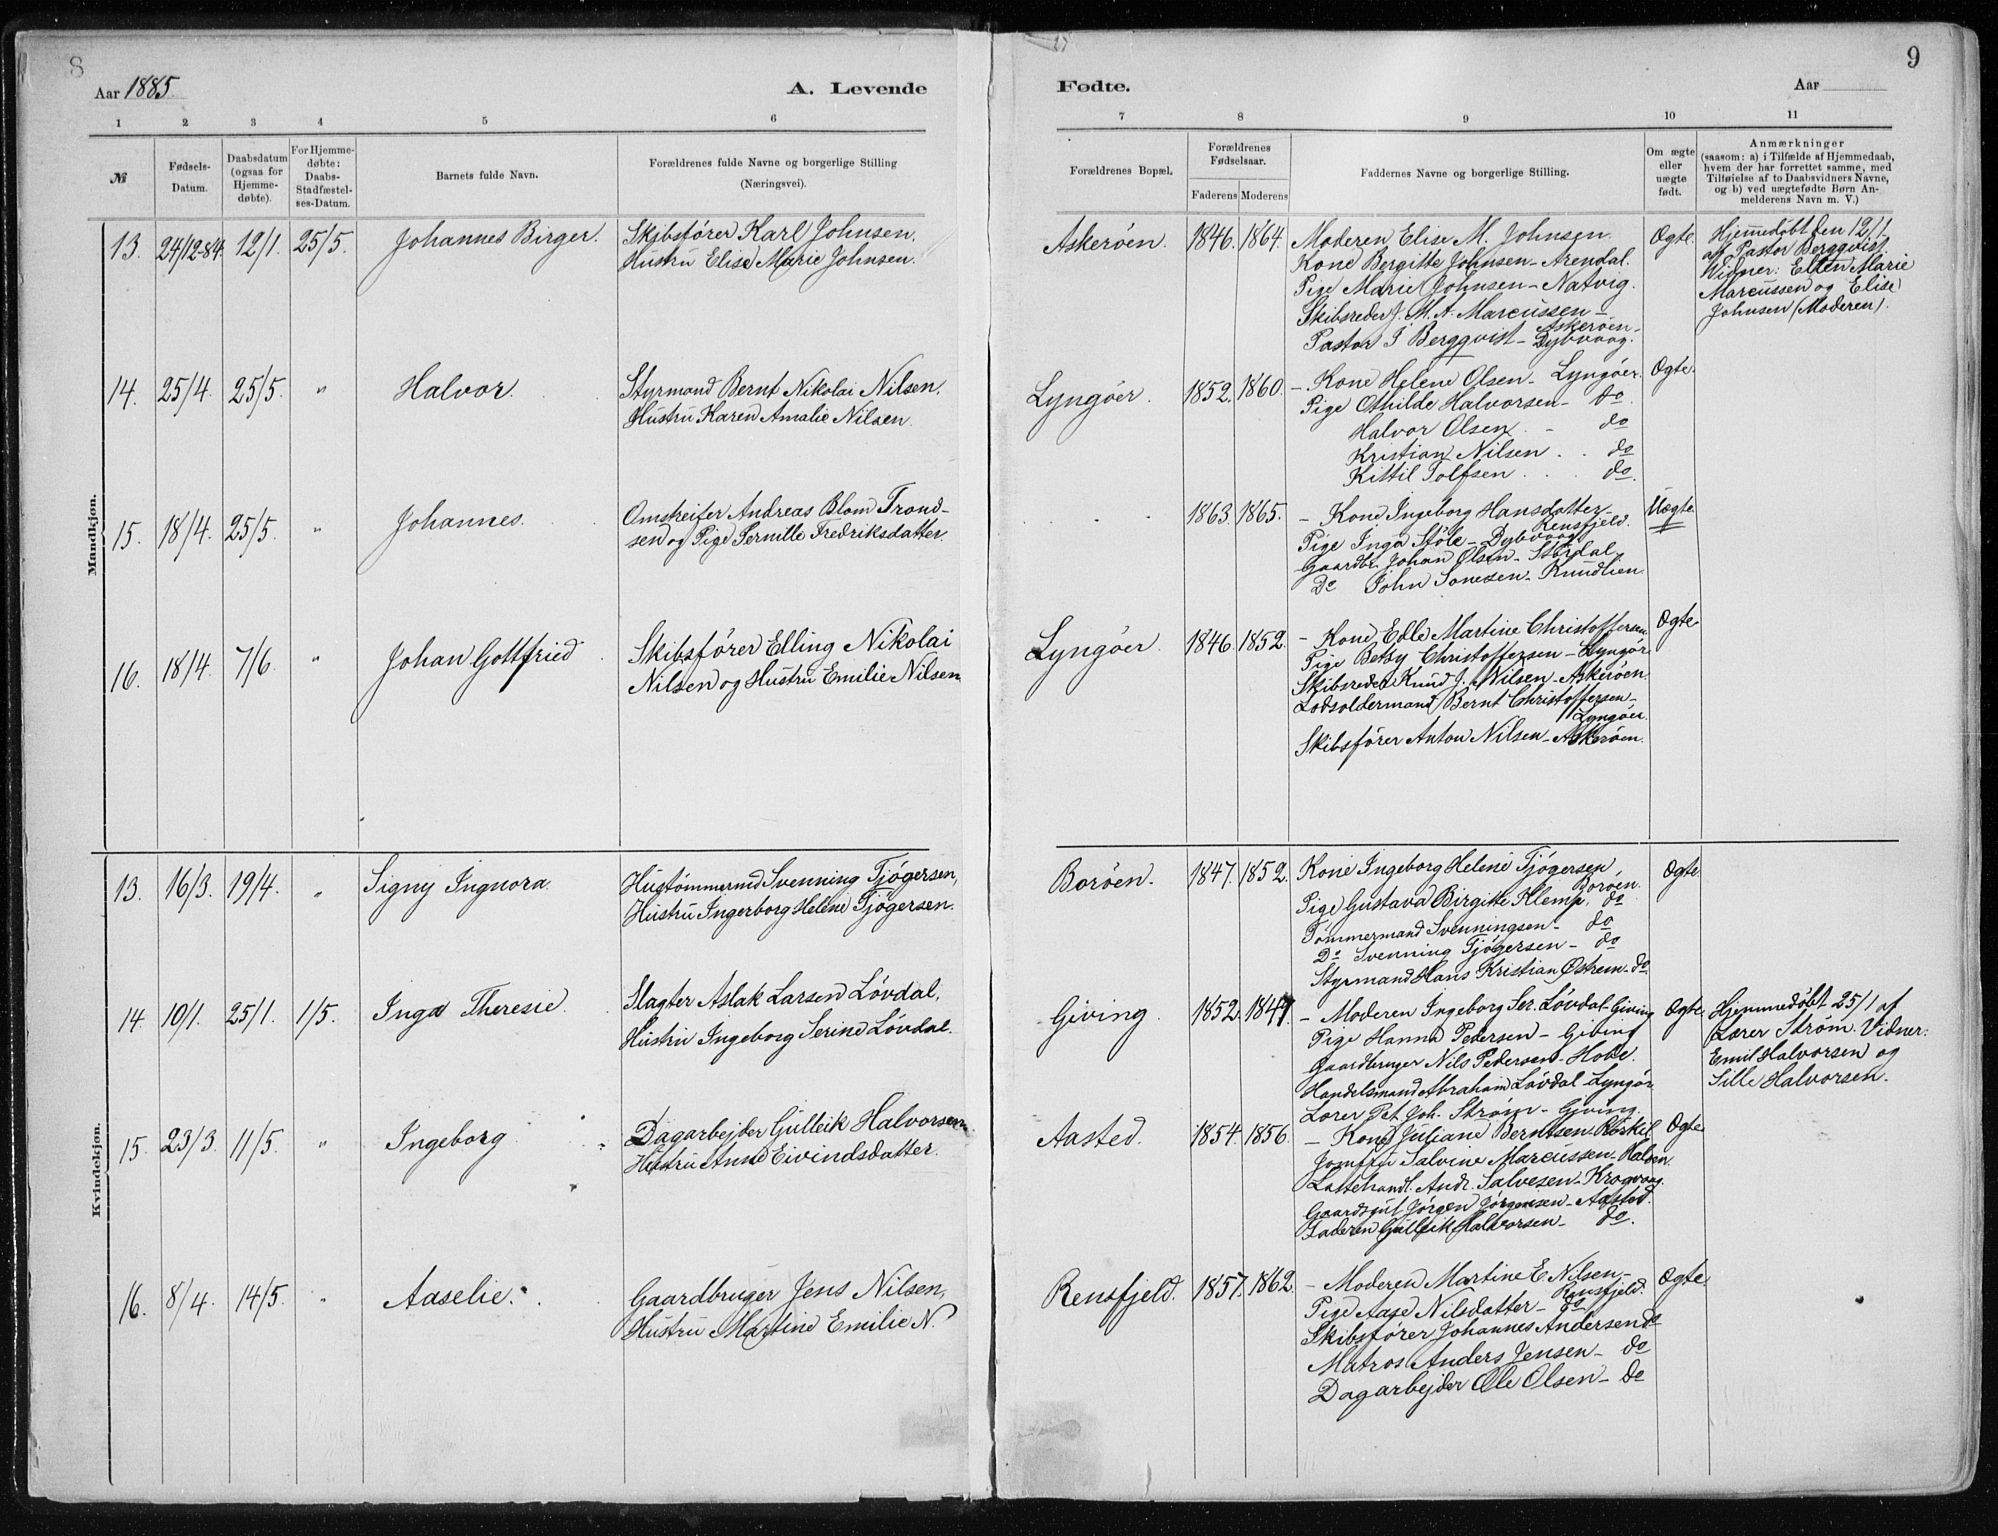 8
Aar 1885
A. Levende
1 2 3 4 5 6
№
Fødsels-
Datum.
Daabsdatum
(ogsaa for
Hjemme-
døbte).
For Hjemme-
døbte:
Daabs-
Stadfæstel-
ses-Datum.
Barnets fulde Navn.
Forældrenes fulde Navne og borgerlige Stilling
(Næringsvei).
Mandkjøn.
13. 24/12-84. 12/1. 25/5. Johannes Birger. Skibsfører Karl Johnsen,
Hustru Elise Marie Johnsen.
14. 25/4. 25/5. " Halvor. Styrmand Bernt Nikolai Nilsen,
Hustru Karen Amalie Nilsen.
15. 18/4. 25/5. " Johannes. Omstreifer Andreas Blom Trond-
sen og Pige Pernille Fredriksdatter.
16. 18/4. 7/6. " Johan Gottfried Skibsfører Elling Nikolai
Nilsen og Hustru Emilie Nilsen
Kvindekjøn.
13. 16/3. 19/4. " Signy Ingnora. Hustømmermd Svenning Tjøgersen,
Hustru Ingerborg Helene Tjøgersen.
14. 10/1. 25/1. 1/5. Inga Theresie. Slagter Aslak Larsen Løvdal,
Hustru Ingeborg Serine Løvdal.
15. 23/3. 11/5. " Ingeborg Dagarbejder Gulleik Halvorsen
Hustru Anne Eivindsdatter.
16. 8/4. 14/5. " Aaselie. Gaardbruger Jens Nilsen,
Hustru Martine Emilie N.
9
Fødte.
Aar
7 8 9 10 11
Forældrenes Bopæl.
Forældrenes
Fødselsaar.
Faderens Moderens
Faddernes Navne og borgerlige Stilling.
Om ægte
eller
uægte
født.
Anmærkninger
(saasom: a) i Tilfælde af Hjemmedaab,
hvem der har forrettet samme, med
Tilføielse af to Daabsvidners Navne,
og b) ved uægtefødte Børn An-
melderens Navn m. V.)
Askerøen. 1846. 1864. Moderen Elise M. Johnsen. Ægte.
Kone Bergitte Johnsen - Arendal.
Pige Marie Johnsen - Natvig.
Skibsreder J. M. A. Marcussen -
Askerøen -
Pastor I Bergqvist - Dybvaag.
Hjemmedøbt den 12/1
af Pastor Bergqvist
Widner: Ellen Marie
Marcussen og Elise
Johnsen (Moderen).
Lyngøer. 1852. 1860. - Kone Helene Olsen - Lyngøer. Ægte.
Pige Othilde Halvorsen - do.
Halvor Olsen. - do
Kristian Nilsen . . do
Kittil Tolfsen . . . do.
1863. 1865. - Kone Ingeborg Hansdatter - Uægte.
Rensfjeld.
Pige Inga Støle - Dybvaag
Gaardbr. Johan Olsen - Stordal
Do John Tonesen - Knudlien.
Lyngøer. 1846. 1852. - Kone Edle Martine Christoffersen Ægte
Pige Betsy Christoffersen - Lyngør.
Skibsreder Knud J. Nilsen - Askerøen.
Lodsoldermand Bernt Christoffersen -
Lyngøer.
Skibsfører Anton Nilsen - Askerøen.
Borøen. 1847. 1852. Kone Ingeborg Helene Tjøgersen Ægte
Borøen.
Pige Gustava Birgitte Klemp, do
Tømmermand Svenningsen - do
Do Svenning Tjøgersen - do
Styrmand Hans Kristian Østrem - do
Giving. 1852. 1847. - Moderen Ingeborg Ser. Løvdal - Giving Ægte.
Pige Hanna Pedersen - Giving
Gaardbruger Nils Pedersen - Hobe.
Handelsmand Abraham Løvdal - Lyngør
Lærer Pet. Joh. Strøm - Giving.
Hjemmedøbt 25/1 af
Lærer Strøm. Vidner:
Emil Halvorsen og
Sille Halvorsen.
Aasted. 1854. 1856. - Kone Juliane Berntsen - Røskil Ægte
Jomfru Salvine Marcussen - Halsen.
Andr. Salvesen - Krogvaag.
Gaardsgut Jørgen Jørgensen - Aasted.
Faderen Gulleik Halvorsen - do.
Rensfjeld. 1857. 1862. - Moderen Martine E Nilsen - Ægte.
Rensfjeld.
Pige Aase Nilsdatter - do
Skibsfører Johannes Andersen do
Matros Anders Jensen - do
Dagarbejder Ole Olsen - do